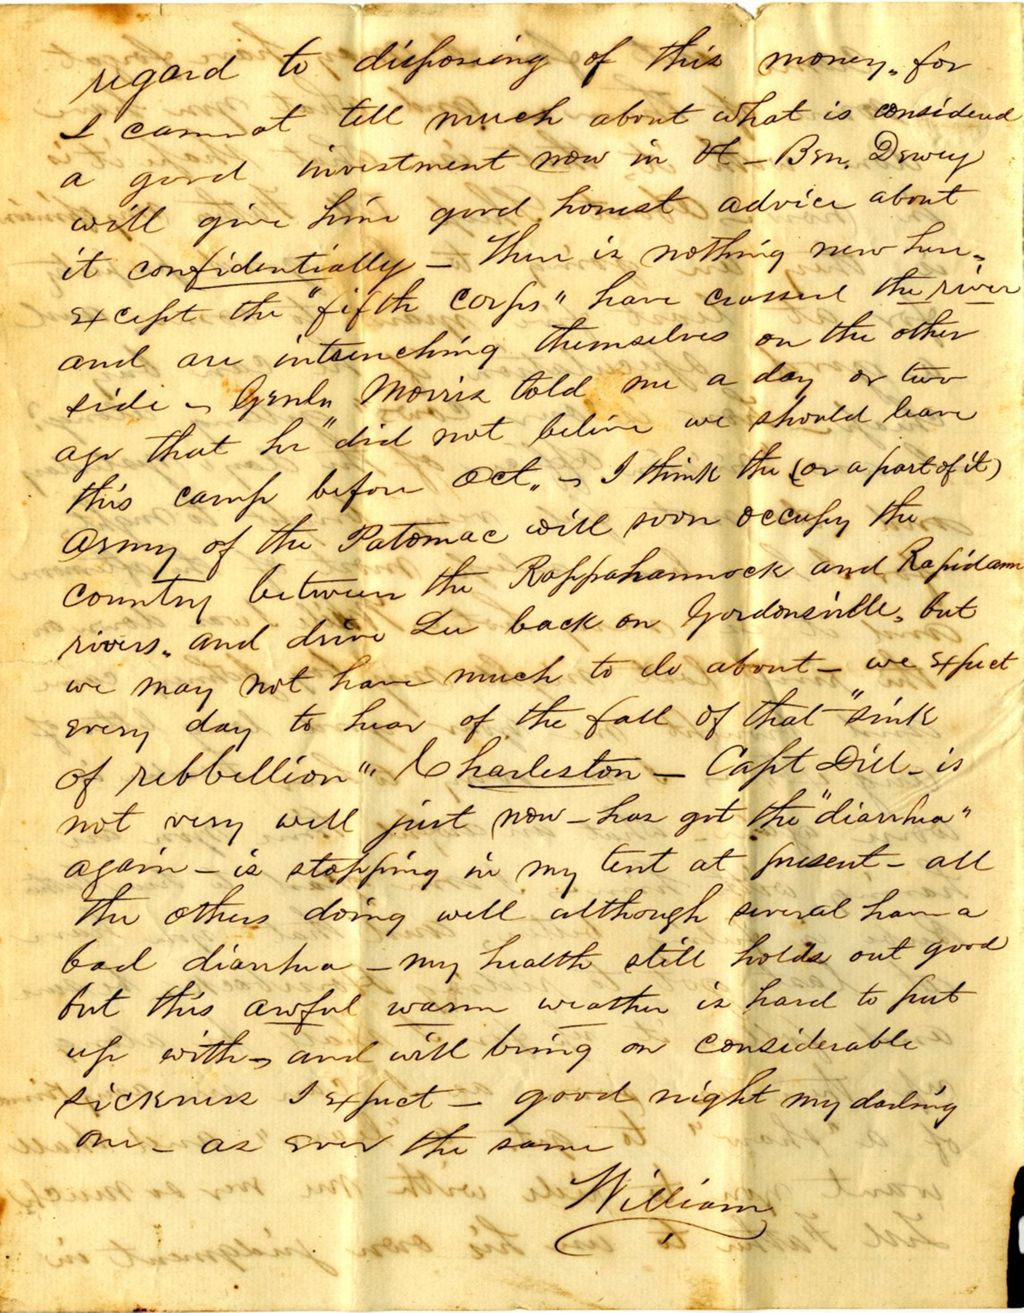 regard to disposing of this money, for
I cannot tell much about what is considered
a good investment now in Vt. – Ben. Dewey
will give him good, honest advice about
it confidentially – There is nothing new here,
except the "fifth corps" have crossed the river
and are intrenching themselves on the other
side – Genl. Morris told me a day or two
ago that he "did not believe we should leave
this camp before Oct. – I think the (or a part of it)
Army of the Patomac will soon occupy the
country between the Rappahannock and Rapidann
rivers, and drive Lee back on Gordonsville, but
we may not have much to do about – we expect
every day to hear of the fall of that "sink
of rebbellion" Charleston – Capt Dill – is
not very well just now – has got the "diarrhea"
again – is stopping in my tent at present – all
the others doing well although several have a
bad diarrhea – my health still holds out good
but this awful warm weather is hard to put
up with – and will bring on considerable
sickness I expect – good night my darling
one – as ever the same
William